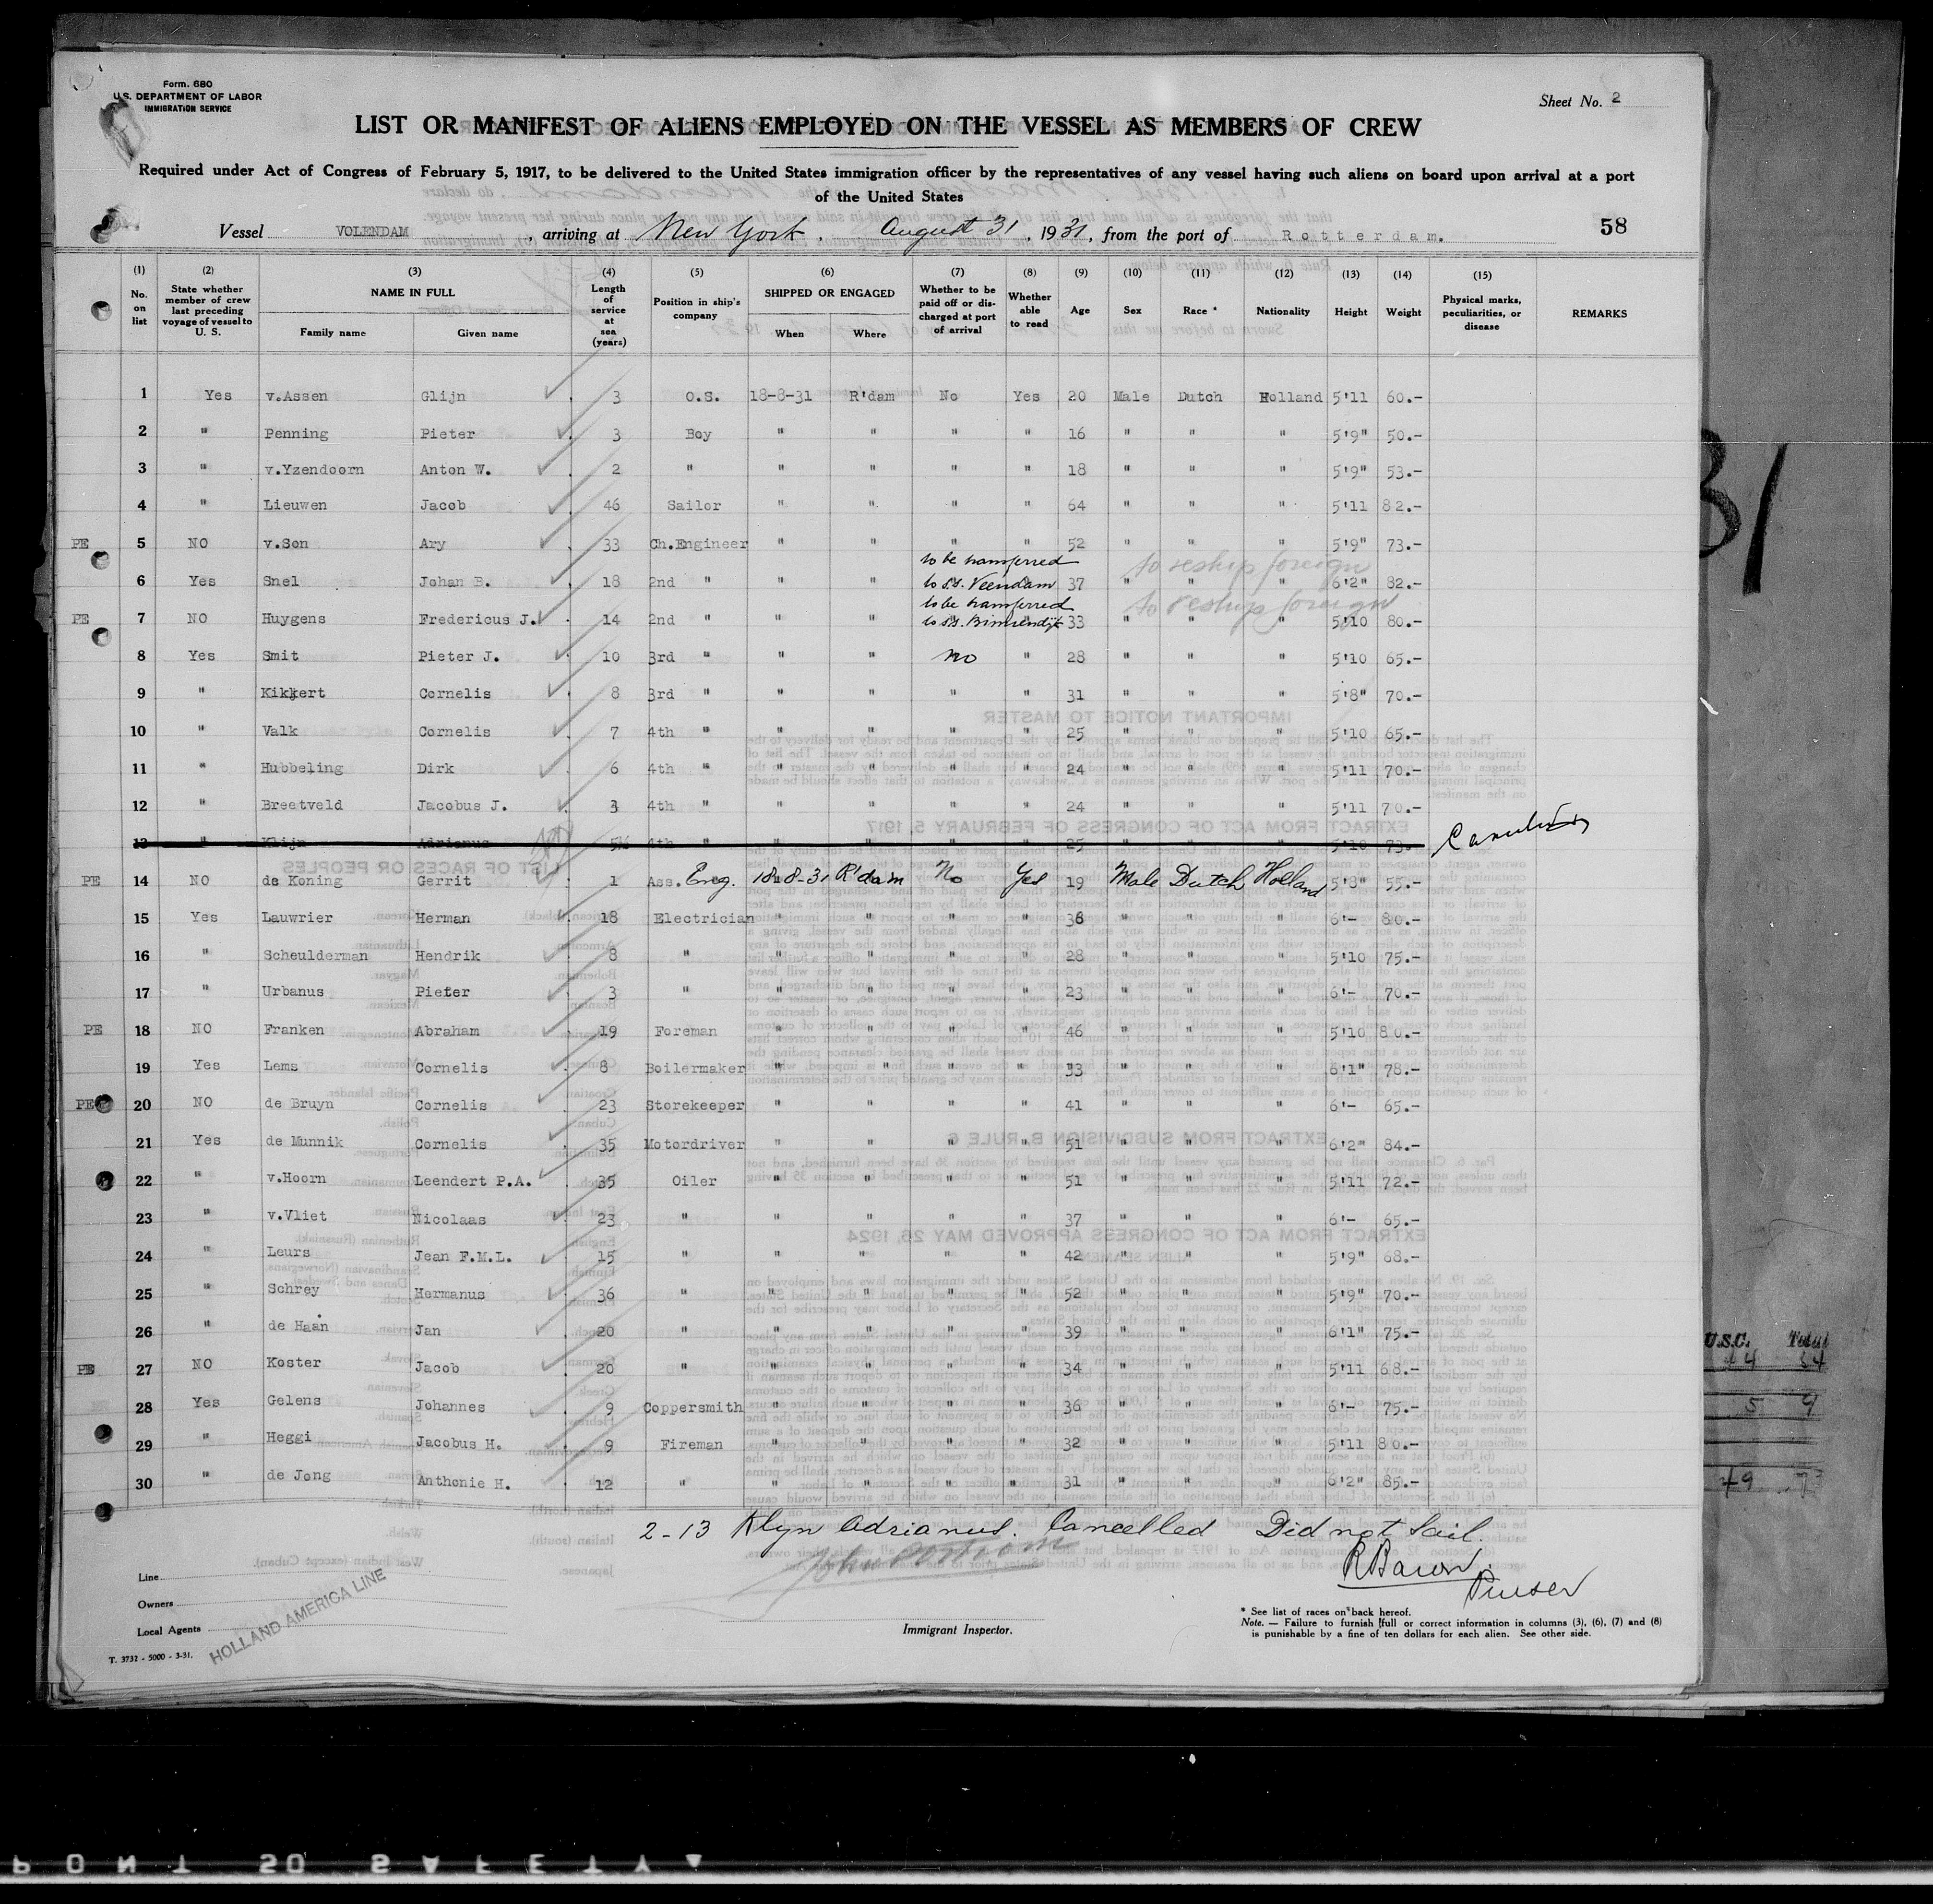 Form. 680
U.S. DEPARTMENT OF LABOR
IMMIGRATION SERVICE
Sheet No. 2
LIST OR MANIFEST OF ALIENS EMPLOYED ON THE VESSEL AS MEMBERS OF CREW
Required under Act of Congress of February 5, 1917, to be delivered to the United States immigration officer by the representatives of any vessel having such aliens on board upon arrival at a port
of the United States
Vessel VOLENDAM, arriving at New York, August 31, 1931, from the port of Rotterdam.
58
(1) No. on list (2) State whether member of crew last preceding voyage of vessel to U. S. (3) NAME IN FULL Family name Given name (4) Length of service at sea (years) (5) Position in ship's company (6) SHIPPED OR ENGAGED When Where (7) Whether to be paid off or discharged at port of arrival (8) Whether able to read (9) Age (10) Sex (11) Race * (12) Nationality (13) Height (14) Weight (15) Physical marks, peculiarities, or disease REMARKS
1 Yes v.Assen Glijn 3 O.S. 18-8-31 R'dam No Yes 20 Male Dutch Holland 5'11 60.-
2 " Penning Pieter 3 Boy " " " " 16 " " " 5'9" 50.-
3 " v.Yzendoorn Anton W. 2 " " " " " 18 " " " 5'9" 53.-
4 " Lieuwen Jacob 46 Sailor " " " " 64 " " " 5'11 82.-
PE 5 NO v.Son Ary 33 Ch.Engineer " " " " 52 " " " 5'9" 73.-
6 Yes Snel Johan B. 18 2nd " " " to be transferred to s.s. Veendam " 37 " " " 6'2" 82.- to reship foreign
PE 7 NO Huygens Fredericus J. 14 2nd " " " to be transferred to s.s. Binnendijk 33 " " " 5'10 80.- to reship foreign
8 Yes Smit Pieter J. 10 3rd " " " no " 28 " " " 5'10 65.-
9 " Kikkert Cornelis 8 3rd " " " " " 31 " " " 5'8" 70.-
10 " Valk Cornelis 7 4th " " " " " 25 " " " 5'10 65.-
11 " Hubbeling Dirk 6 4th " " " " " 24 " " " 5'11 70.-
12 " Breetveld Jacobus J. 3 4th " " " " " 24 " " " 5'11 70.-
13 " Klijn Adrianus 4th " 25 5'10 73.-
PE 14 NO de Koning Gerrit 1 Ass. Eng. 18-8-31 R'dam No Yes 19 Male Dutch Holland 5'8" 55.-
15 Yes Lauwrier Herman 18 Electrician " " " " 38 " " " 6'- 80.-
16 " Scheulderman Hendrik 8 " " " " " 28 " " " 5'10 75.-
17 " Urbanus Pieter 3 " " " " " 23 " " " 6'- 70.-
PE 18 NO Franken Abraham 19 Foreman " " " " 46 " " " 5'10 80.-
19 Yes Lems Cornelis 8 Boilermaker " " " " 33 " " " 6'1" 78.-
PE 20 NO de Bruyn Cornelis 23 Storekeeper " " " " 41 " " " 6'- 65.-
21 Yes de Munnik Cornelis 35 Motordriver " " " " 51 " " " 6'2" 84.-
22 " v.Hoorn Leendert P.A. 35 Oiler " " " " 51 " " " 5'11 72.-
23 " v.Vliet Nicolaas 23 " " " " " 37 " " " 6'- 65.-
24 " Leurs Jean F.M.L. 15 " " " " " 42 " " " 5'9" 68.-
25 " Schrey Hermanus 36 " " " " " 52 " " " 5'9" 70.-
26 " de Haan Jan 20 " " " " " 39 " " " 6'1" 75.-
PE 27 NO Koster Jacob 20 " " " " " 34 " " " 5'11 68.-
28 Yes Gelens Johannes 9 Coppersmith " " " " 36 " " " 6'- 75.-
29 " Heggi Jacobus H. 9 Fireman " " " " 32 " " " 5'11 80.-
30 " de Jong Anthonie H. 12 " " " " " 31 " " " 6'2" 85.-
2-13 Klyn Adrianus. Cancelled Did not Sail.
Purser
Line
Owners
Local Agents
HOLLAND AMERICA LINE
T. 3732 - 5000 - 3-31.
Immigrant Inspector.
* See list of races on back hereof.
Note. — Failure to furnish full or correct information in columns (3), (6), (7) and (8)
is punishable by a fine of ten dollars for each alien. See other side.
U.S.C. Total
31